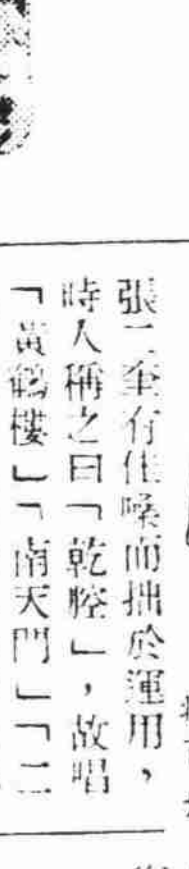 張二奎有佳喉而拙於運用，
時人稱之曰「乾腔」，故唱
「黃鶴樓」「南天門」「二